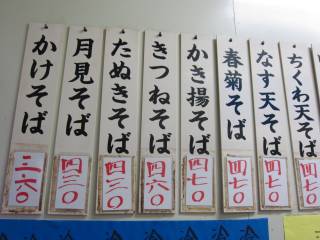 ちくわ天そば
四七〇
なす天そば
四七〇
春菊そば
四七〇
かき揚そば
四七〇
きつねそば
四六〇
たぬきそば
四三〇
月見そば
四三〇
かけそば
三六〇